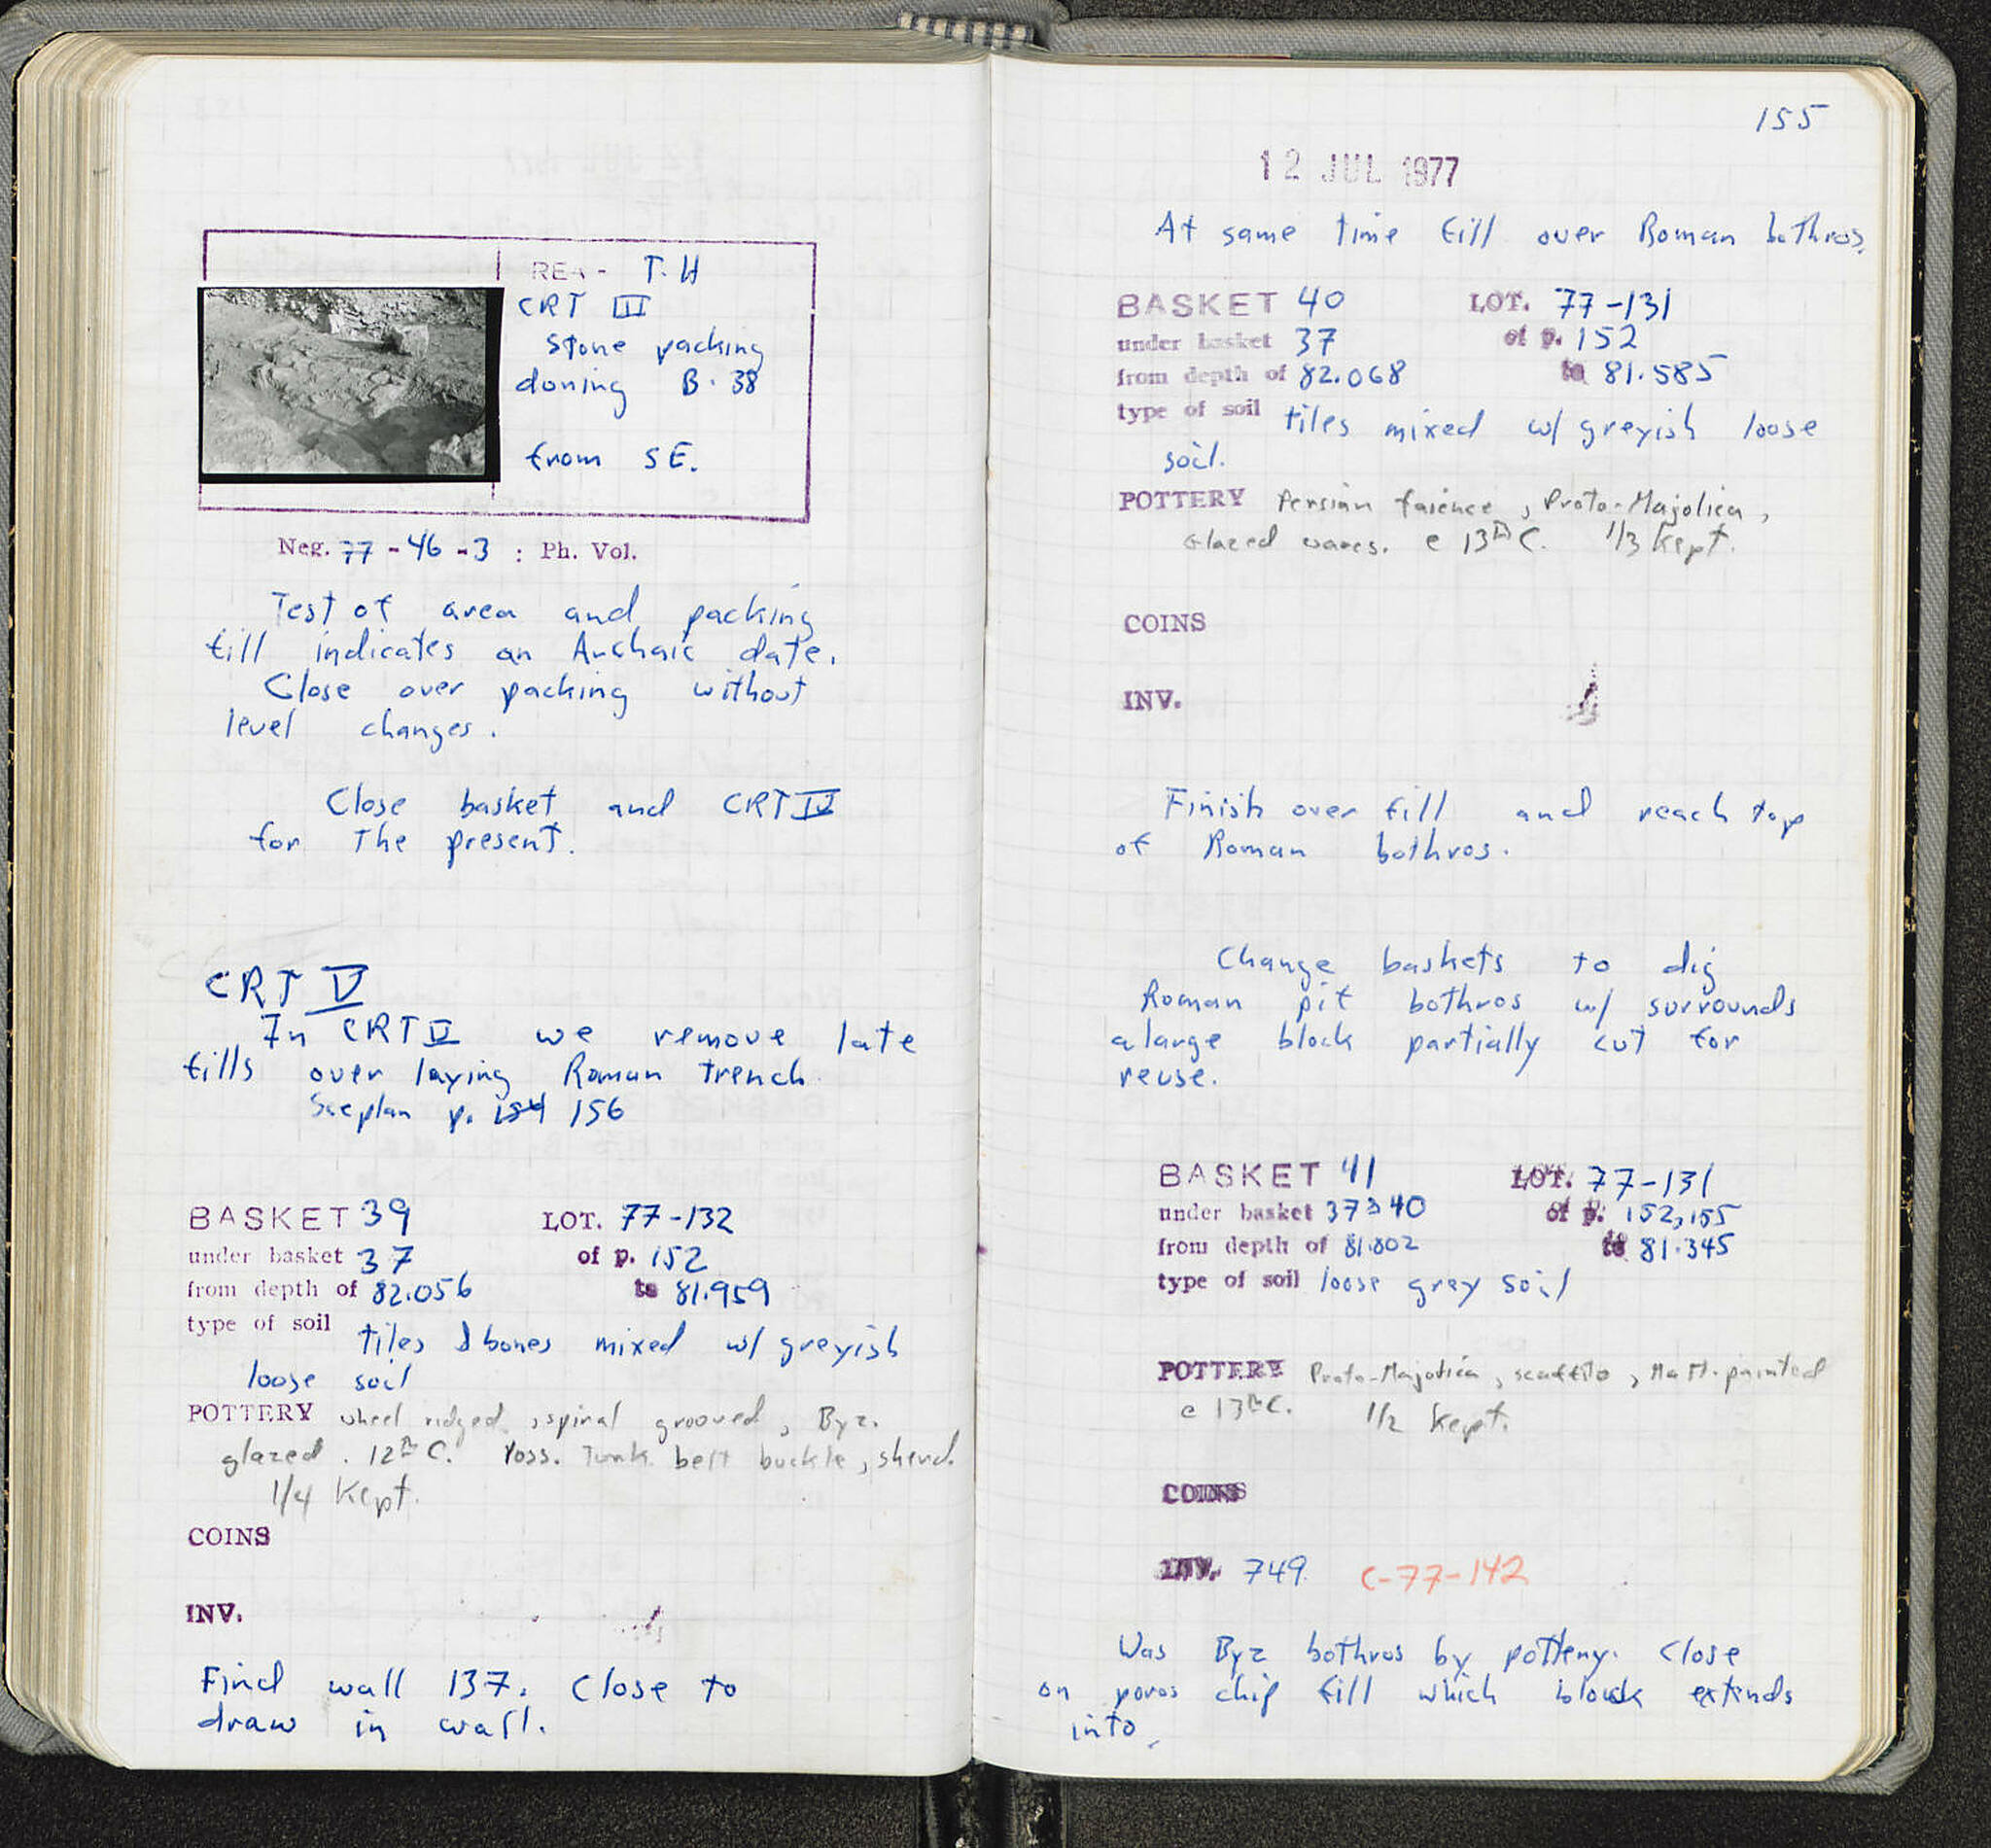 T. H
CRT III
stone packing
doning B. 38
from SE.
Neg. 77-46-3 : Ph. Vol.
Test of area and packing
fill indicates an Archaic date.
Close over packing without
level changes.
Close basket and CRT IV
for The present.
CRT V
In CRT V we remove late
fills over laying Roman trench
See plan p. 156
BASKET 39 LOT. 77-132
under basket 37 of p. 152
from depth of 82.056 to 81.959
type of soil tiles & bones mixed w/ greyish
loose soil
POTTERY wheel ridged, spiral grooved, Byz.
glazed. 12th C. Poss. Turk. belt buckle, sherd.
1/4 Kept.
COINS
INV.
Find wall 137. Close to
draw in wall.
155
12 JUL 1977
At same time fill over Roman bothros.
BASKET 40 LOT. 77-131
under basket 37 of p. 152
from depth of 82.068 to 81.585
type of soil tiles mixed w/ greyish loose
soil.
POTTERY Persian faience, Proto-Majolica,
Glazed wares. c 13th C. 1/3 Kept.
COINS
INV.
Finish over fill and reach top
of Roman bothros.
Change baskets to dig
Roman pit bothros w/ surrounds
a large block partially cut for
reuse.
BASKET 41 LOT. 77-131
under basket 37 & 40 of p. 152, 155
from depth of 81.802 to 81.345
type of soil loose grey soil
POTTERY Proto-Majolica, scaffito, Matt-painted
c 13th C. 1/2 Kept.
COINS
INV. 749 C-77-142
Was Byz bothros by pottery. Close
on poros chip fill which block extends
into.